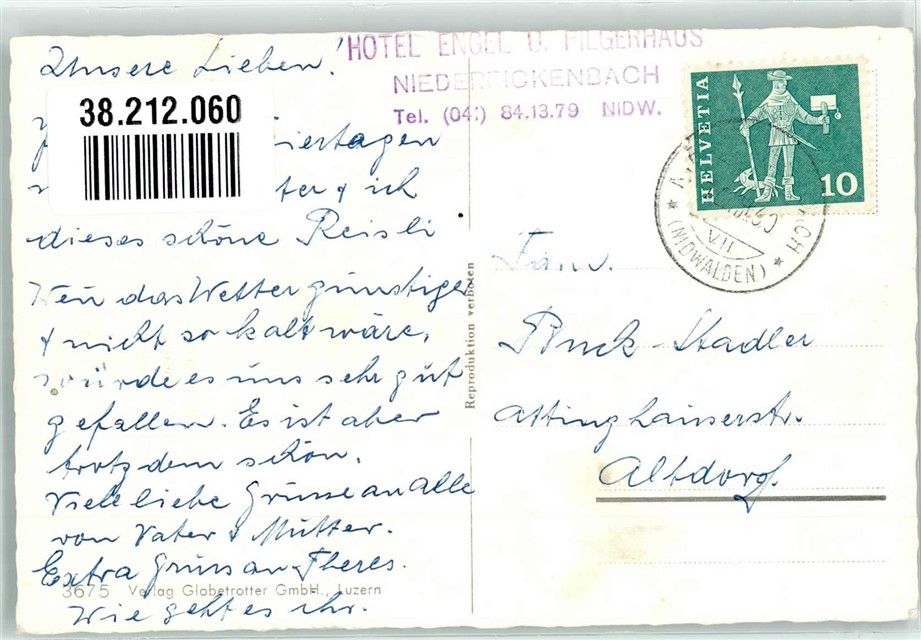 Unsere Lieben!
38.212.060
iertagen
ter & ich
dieses schöne Reisli
Wen das Wetter günstiger
& nicht so kalt wäre,
würde es uns sehr gut
gefallen. Es ist aber
trotzdem schön.
Viele liebe Grüsse an alle
von Vater & Mutter.
Extra Gruss an Theres.
Wie geht es ihr.
3675 Verlag Globetrotter GmbH., Luzern
Reproduktion verboten
HOTEL ENGEL U. PILGERHAUS
NIEDERRICKENBACH
Tel. (041) 84.13.79 NIDW.
HELVETIA
10
VII
(NIDWALDEN)
Fam.
Buck-Stadler
Attinghauserstr.
Altdorf.